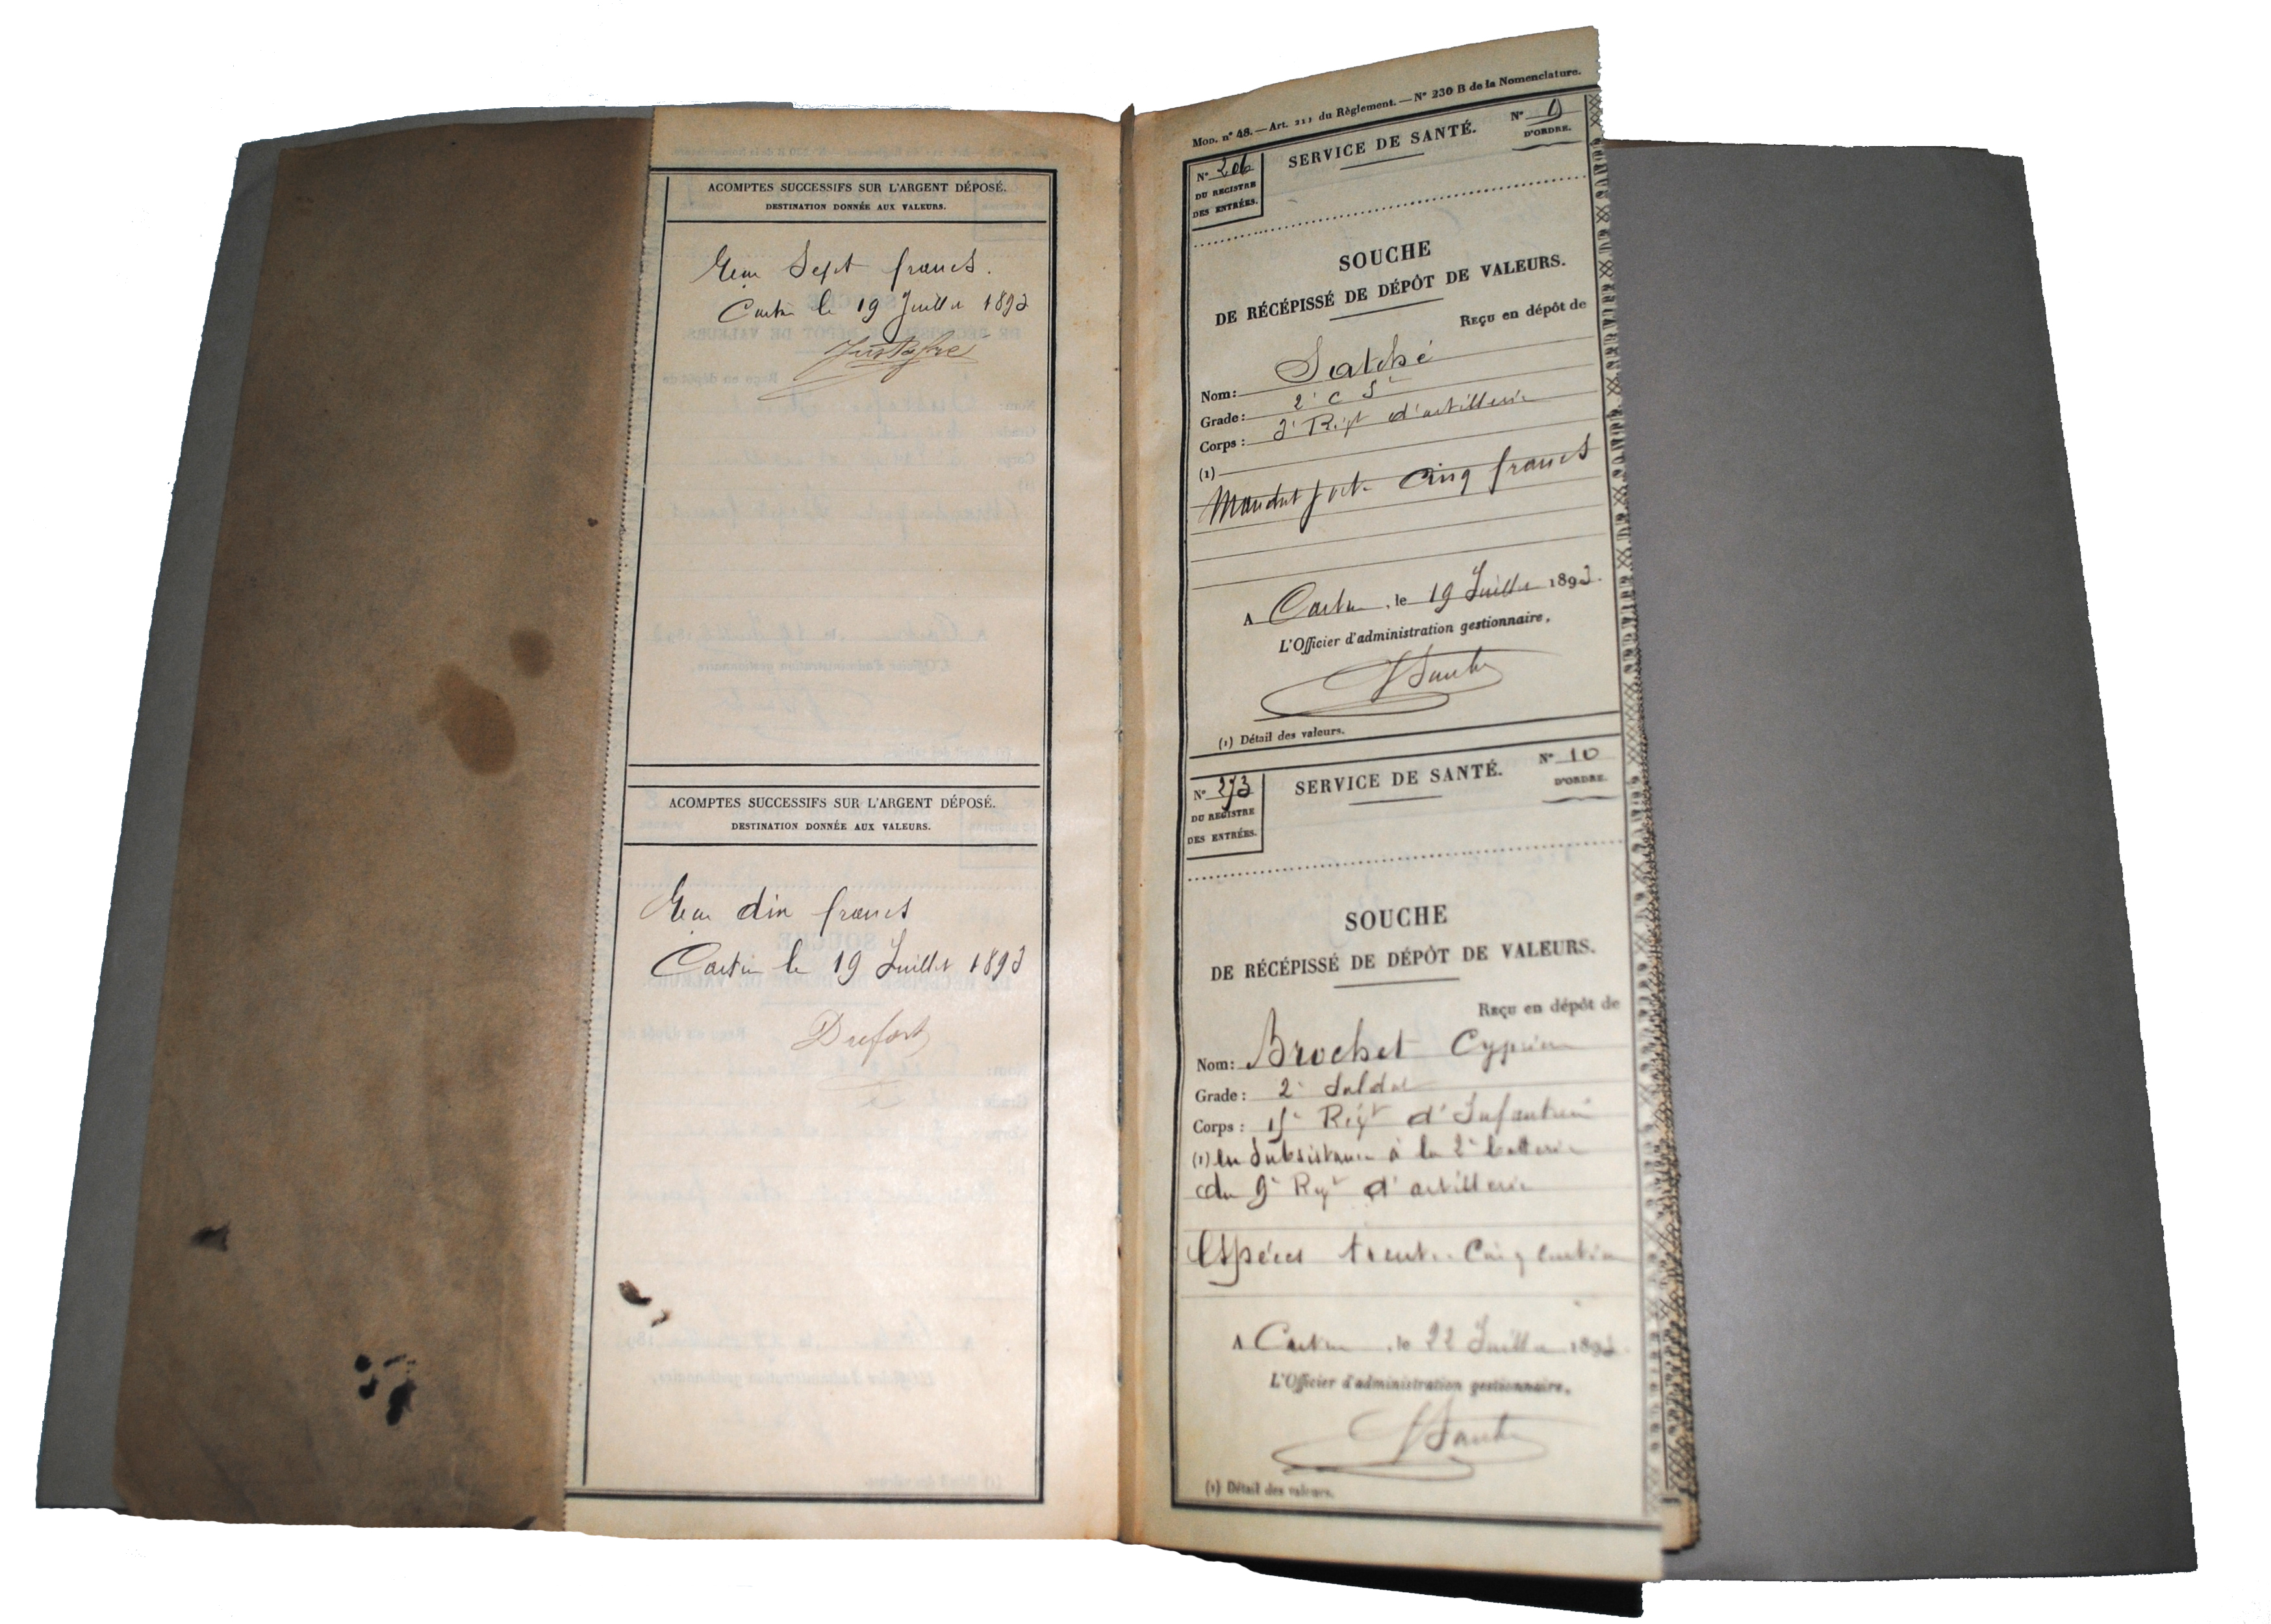 ACOMPTES SUCCESSIFS SUR L'ARGENT DÉPOSÉ.
DESTINATION DONNÉE AUX VALEURS.
Sept francs.
le 19 Juillet 1893
ACOMPTES SUCCESSIFS SUR L'ARGENT DÉPOSÉ.
DESTINATION DONNÉE AUX VALEURS.
dix francs
le 19 Juillet 1893
Dufort
MOD. n° 48. — Art. 211 du Règlement. — N° 230 B de la Nomenclature.
N° 206
DU REGISTRE
DES ENTRÉES.
SERVICE DE SANTÉ.
N° 9
D'ORDRE.
SOUCHE
DE RÉCÉPISSÉ DE DÉPÔT DE VALEURS.
REÇU en dépôt de
Nom:
Grade: 2e C St
Corps: Régt d'artillerie
(1)
Mandat poste Cinq francs
A , le 19 Juillet 1893.
L'Officier d'administration gestionnaire,
(1) Détail des valeurs.
N° 273
DU REGISTRE
DES ENTRÉES.
SERVICE DE SANTÉ.
N° 10
D'ORDRE.
SOUCHE
DE RÉCÉPISSÉ DE DÉPÔT DE VALEURS.
REÇU en dépôt de
Nom: Brochet Cyprien
Grade: 2e Soldat
Corps: 15e Régt d'Infanterie
(1) en Subsistance à la 2e batterie
du 9e Regt d'artillerie
Espéces trente Cinq centimes
A , le 22 Juillet 1893.
L'Officier d'administration gestionnaire,
(1) Détail des valeurs.